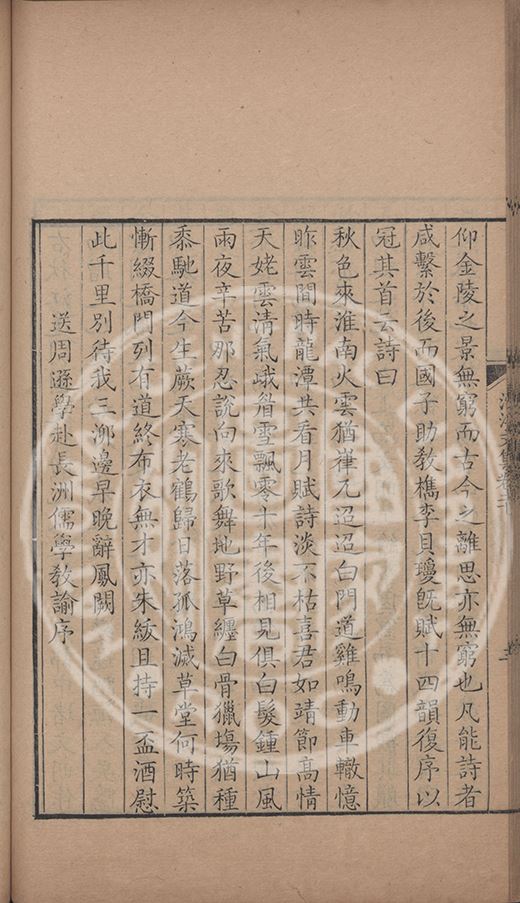 仰金陵之景無窮而古今之離思亦無窮也凡能詩者
咸繫於後而國子助教檇李貝瓊既賦十四韻復序以
冠其首云詩曰
秋色來淮南火雲猶嵂兀迢迢白門道雞鳴動車轍憶
昨雲間時龍潭共看月賦詩淡不枯喜君如靖節髙情
天姥雲清氣峨眉雪飄零十年後相見俱白髮鍾山風
雨夜辛苦那忍說向來歌舞地野草纏白骨獵塲猶種
黍馳道今生蕨天寒老鶴歸日落孤鴻滅草堂何時築
慚綴橋門列有道終布衣無才亦朱紱且持一盃酒慰
此千里别待我三泖邊早晚辭鳳闕
送周遜學赴長洲儒學教諭序